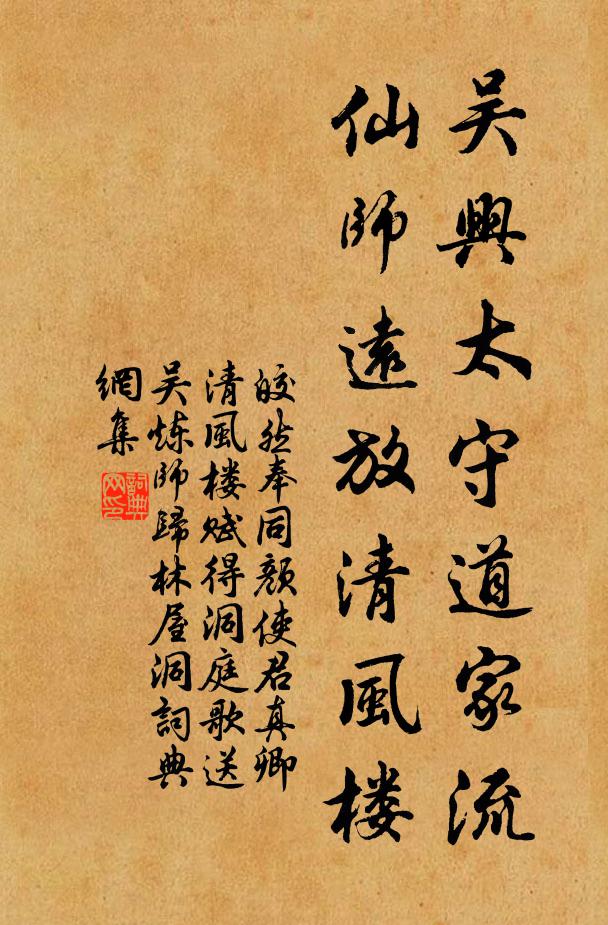 吴興太守道家流
仙師遠放清風楼
皎然奉同顔使君真卿
清風楼赋得洞庭歌送
吴炼師歸林屋洞詞典
網集
詞典网印